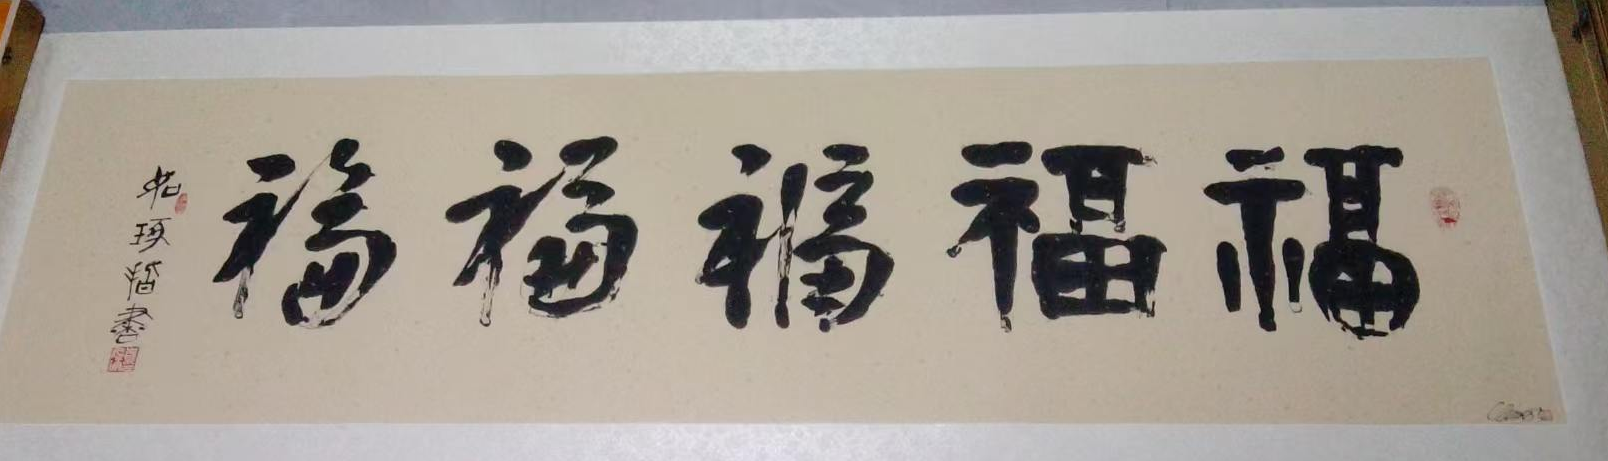 福福福福福
書